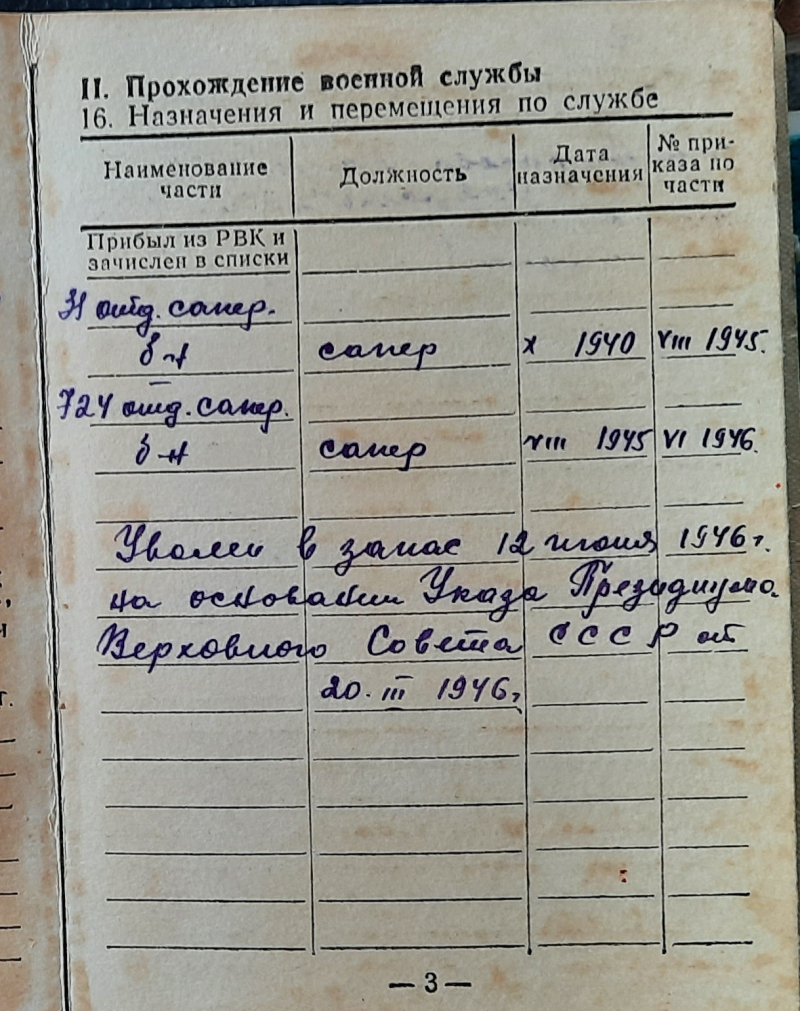 II. Прохождение военной службы
16. Назначения и перемещения по службе
Наименование части
Должность
Дата назначения
№ приказа по части
Прибыл из РВК и
зачислен в списки
31 отд. сапер.
б-н сапер X 1940 VIII 1945.
724 отд. сапер.
б-н сапер VIII 1945 VI 1946.
Уволен в запас 12 июня 1946 г.
на основании Указа Президиума
Верховного Совета СССР от
20. III 1946 г.
— 3 —